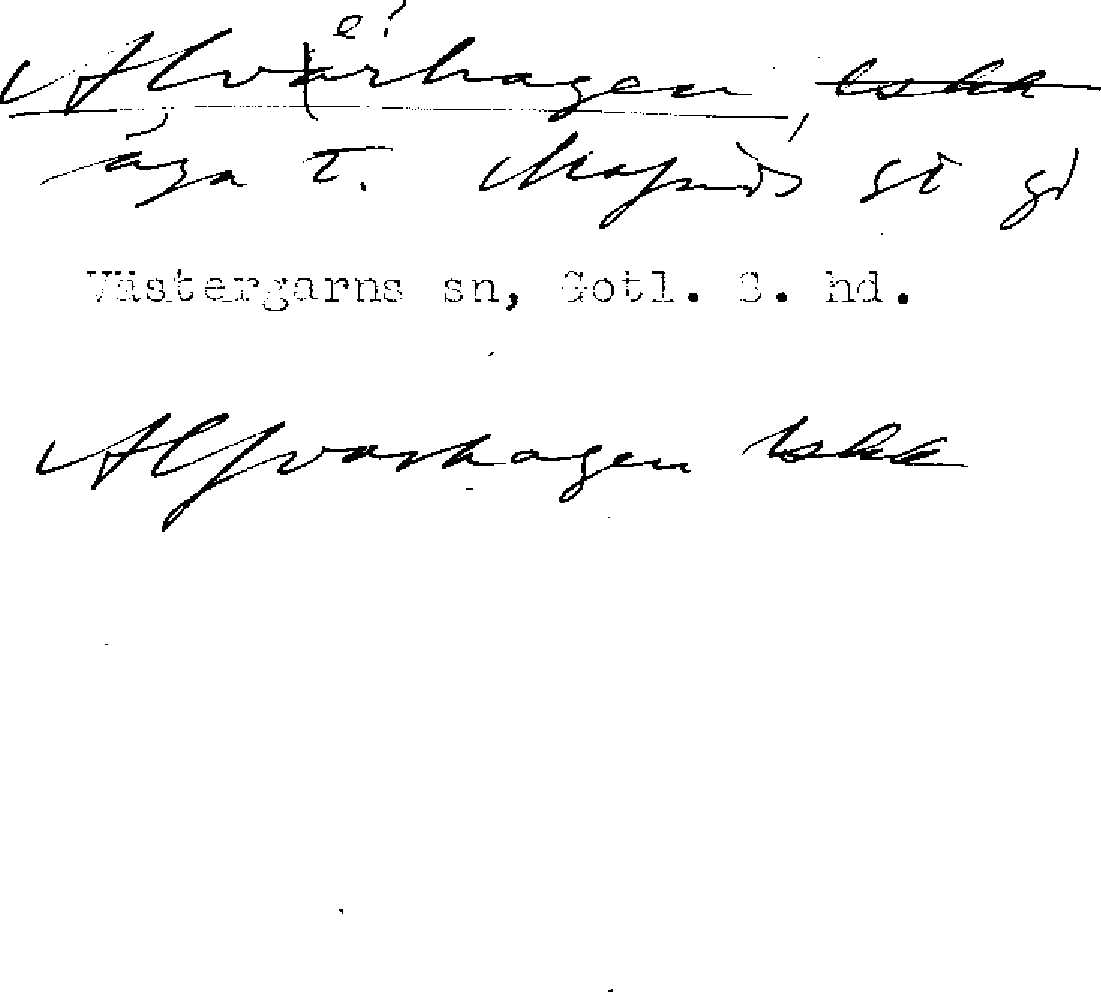 e?
Alvarhagen, tskk
äga t. Mafrids st gd
Västergarns sn, Gotl. S. hd.
Alfvarhagen tskk